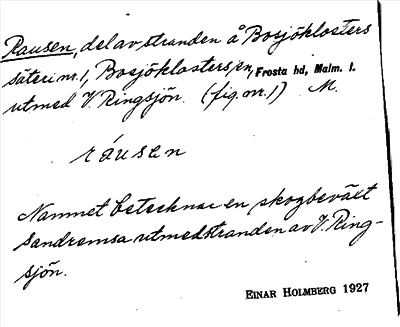 Rausen, del av stranden å Bosjöklosters
säteri nr. 1, Bosjöklosters sn, Frosta hd, Malm. l.
utmed V. Ringsjön. (fig. nr. 1) M.
ráusen
Namnet betecknar en skogbevält
sandremsa utmed stranden av V. Ring-
sjön.
EINAR HOLMBERG 1927